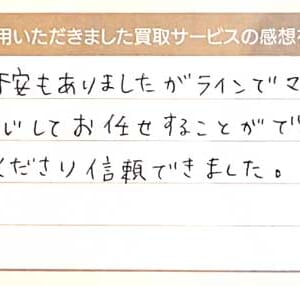 用いただきました買取サービスの感想を
不安もありましたがラインでマ
心してお任せすることがで
くださり信頼できました。